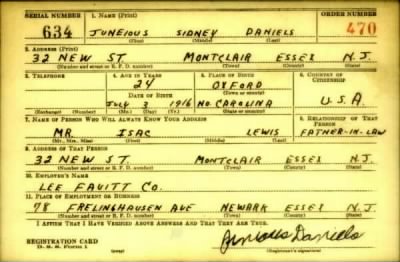 SERIAL NUMBER 1. NAME (Print) ORDER NUMBER
634 JUNEIOUS SIDNEY DANIELS 470
(First) (Middle) (Last)
2. ADDRESS (Print)
32 NEW ST. MONTCLAIR ESSEX N.J.
(Number and street or R. F. D. number) (Town) (County) (State)
3. TELEPHONE 4. AGE IN YEARS 5. PLACE OF BIRTH 6. COUNTRY OF CITIZENSHIP
24 OXFORD
DATE OF BIRTH (Town or county)
JULY 3 1916 NO. CAROLINA U.S.A.
(Exchange) (Number) (Mo.) (Day) (Yr.) (State or country)
7. NAME OF PERSON WHO WILL ALWAYS KNOW YOUR ADDRESS 8. RELATIONSHIP OF THAT PERSON
MR. ISAC LEWIS FATHER-IN-LAW
(Mr., Mrs., Miss) (First) (Middle) (Last)
9. ADDRESS OF THAT PERSON
32 NEW ST. MONTCLAIR ESSEX N.J.
(Number and street or R. F. D. number) (Town) (County) (State)
10. EMPLOYER'S NAME
LEE FAVITT CO.
11. PLACE OF EMPLOYMENT OR BUSINESS
78 FRELINGHAUSEN AVE NEWARK ESSEX N.J.
(Number and street or R. F. D. number) (Town) (County) (State)
I AFFIRM THAT I HAVE VERIFIED ABOVE ANSWERS AND THAT THEY ARE TRUE.
REGISTRATION CARD
D. S. S. Form 1 Junious Daniels
(Registrant's signature)